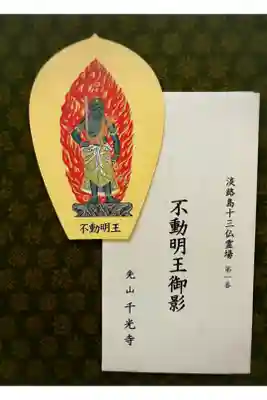 不動明王
淡路島十三仏霊場 第一番
不動明王御影
先山 千光寺